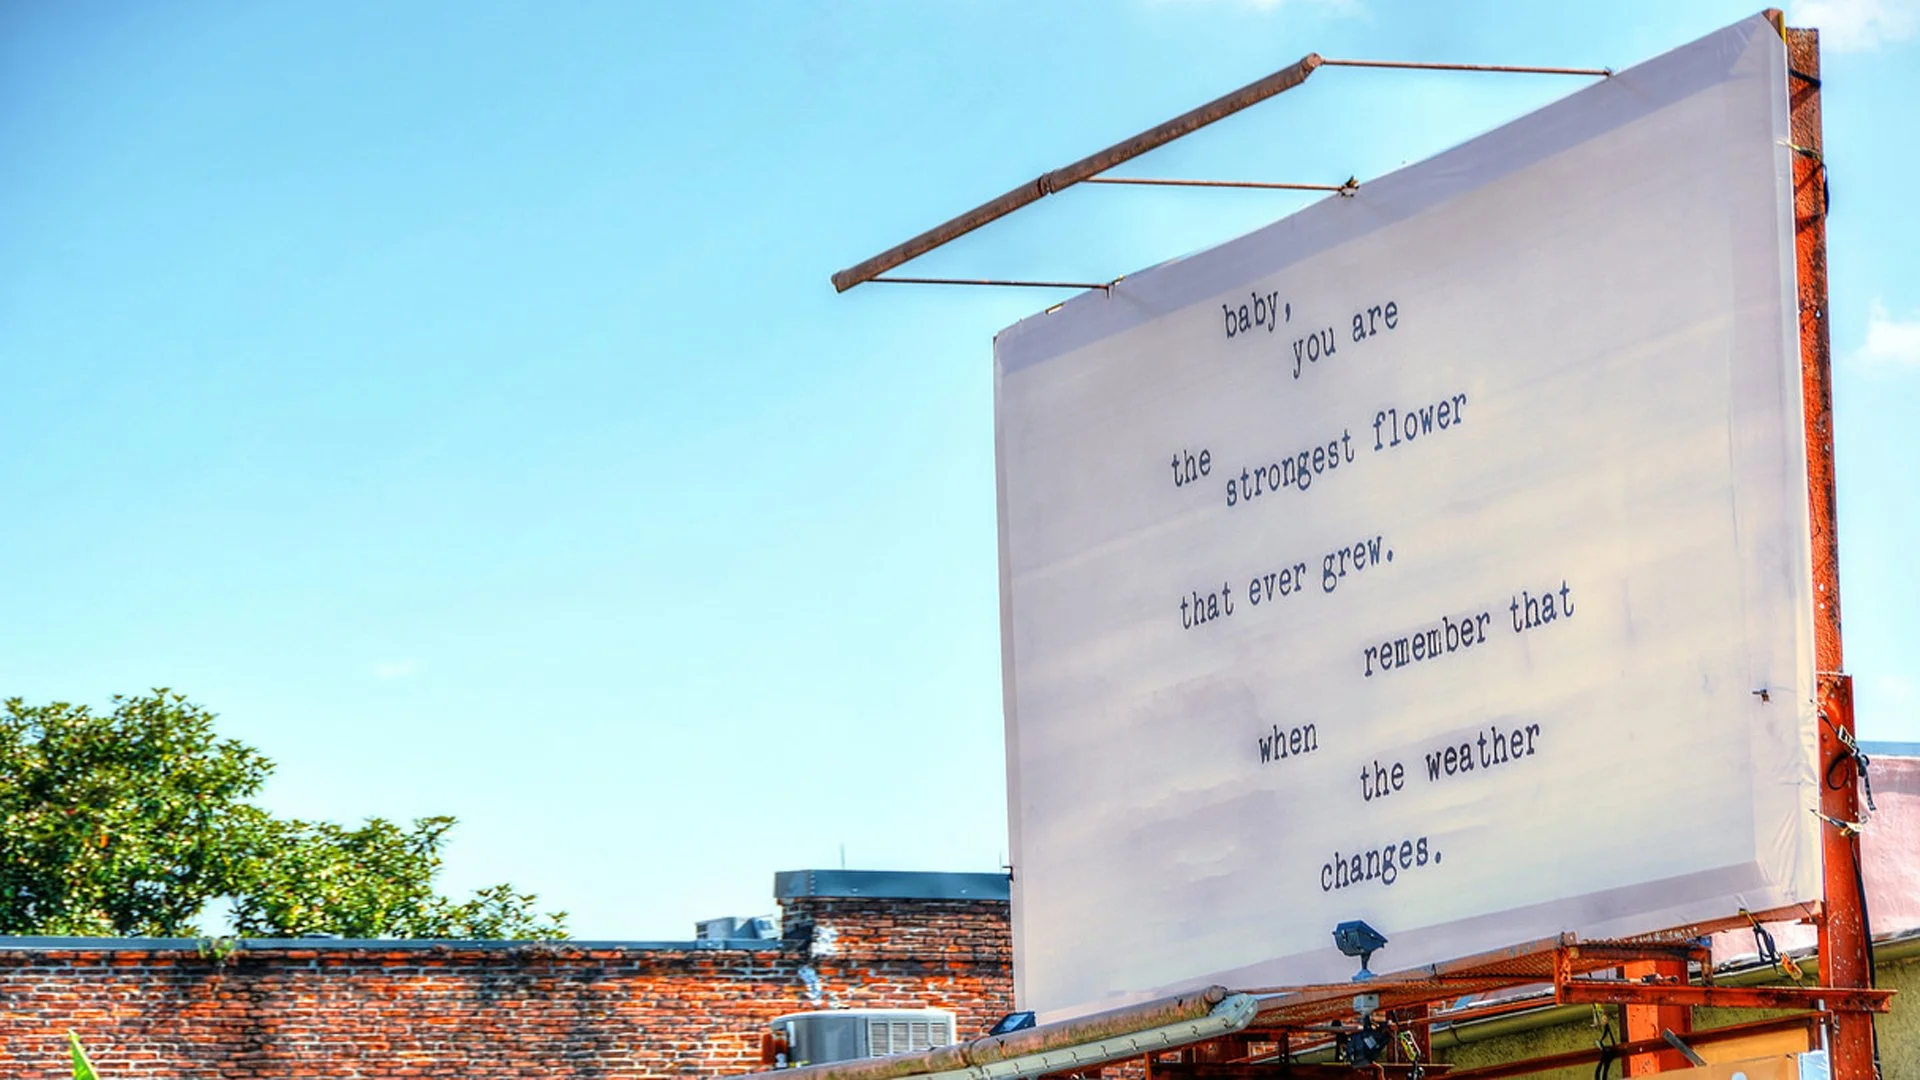 baby,
you are
the
strongest flower
that ever grew.
remember that
when
the weather
changes.